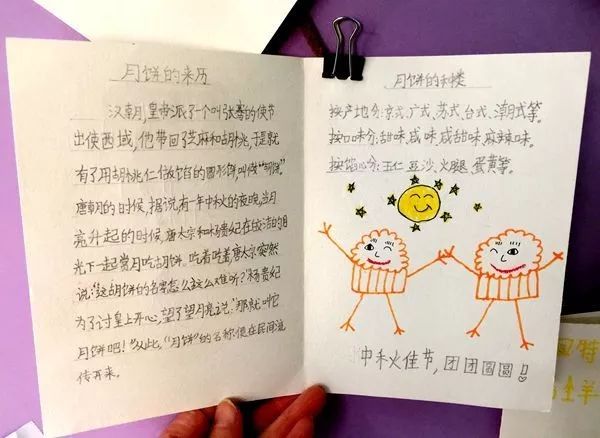 月饼的来历
汉朝月,皇帝派了一个叫张骞的使节
出使西域,他带回了芝麻和胡桃,于是就
有了用胡桃仁做馅的圆形饼,叫做“胡饼”。
唐朝的时候,据说,有一年中秋的夜晚,当月
亮升起的时候,唐太宗和杨贵妃在皎洁的月
光下一起赏月吃胡饼。吃着吃着唐太宗突然
说:“这胡饼的名字怎么这么难听?”杨贵妃
为了讨皇上开心,望了望月亮说:“那就叫它
月饼吧!”从此,“月饼”的名称便在民间流
传开来。
月饼的种类
按产地分:京式、广式、苏式、台式、潮式等。
按口味分:甜味、咸味、咸甜味、麻辣味。
按馅心分:五仁、豆沙、火腿、蛋黄等。
中秋佳节,团团圆圆!